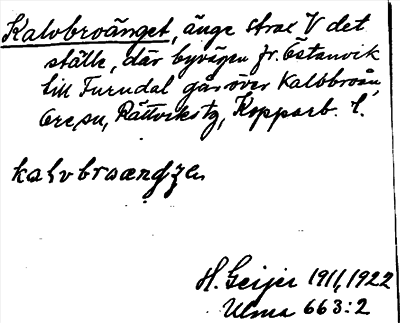 Kalvbroänget, änge strax V det
ställe, där byvägen fr. Östanvik
till Furudal går över Kalvbroån,
Ore sn, Rättviks tg, Kopparb. l.
H. Geijer 1911, 1922
Ulma 663:2